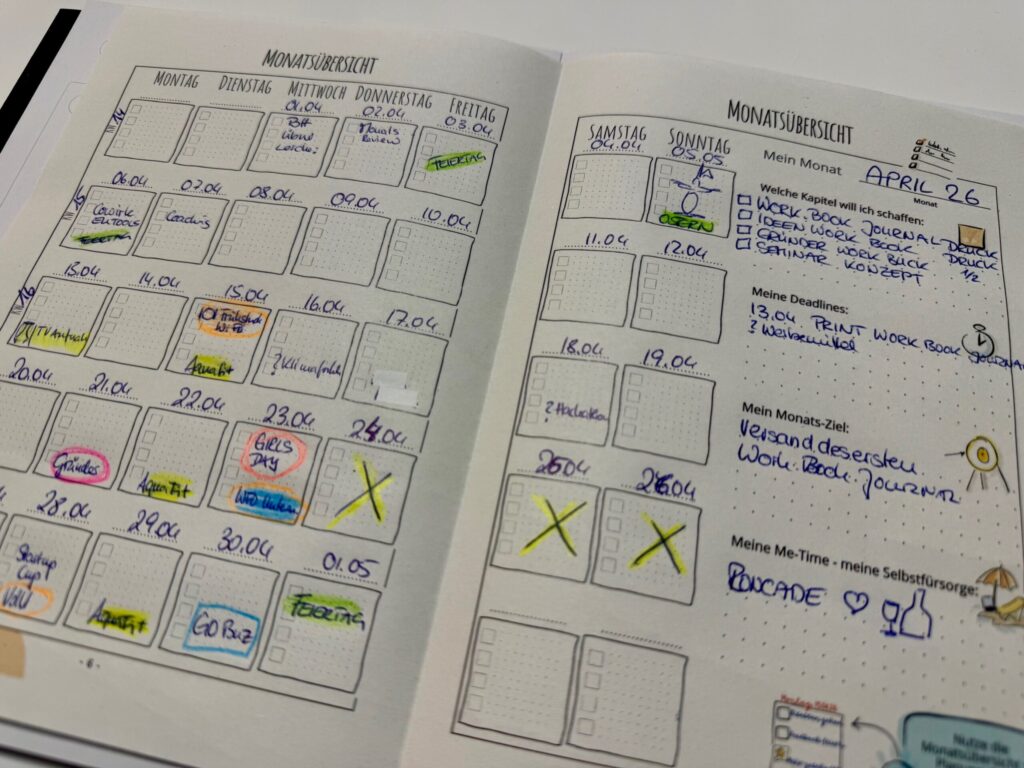 MONATSÜBERSICHT
MONTAG DIENSTAG MITTWOCH DONNERSTAG FREITAG
01.04 02.04 03.04
KW 14
Monats
Review
FEIERTAG
06.04 07.04 08.04 09.04 10.04
15
Cowork
FEIERTAG
Coaching
13.04 14.04 15.04 16.04 17.04
KW 16
TV Aufnah
Frühstück
AquaFit
? Klimafrüh
20.04 21.04 22.04 23.04 24.04
Gründer
AquaFit
GIRLS
DAY
28.04 29.04 30.04 01.05
Startup
Cup
VdU
AquaFit
GO BUZ
FEIERTAG
- 6 -
MONATSÜBERSICHT
SAMSTAG SONNTAG
04.04 05.05
OSTERN
11.04 12.04
18.04 19.04
25.04 26.04
Mein Monat APRIL 26
Monat
Welche Kapitel will ich schaffen:
WORK.BOOK JOURNAL DRUCK
IDEEN WORK BOOK DRUCK
GRÜNDER WORK BUCK 1/2
SEMINAR KONZEPT
Meine Deadlines:
13.04 PRINT WORK BOOK JOURNAL
? Werbemittel
Mein Monats-Ziel:
Versand des ersten
Work.Book.Journal
Meine Me-Time - meine Selbstfürsorge:
RONCADE
Nutze die
Monatsübersicht